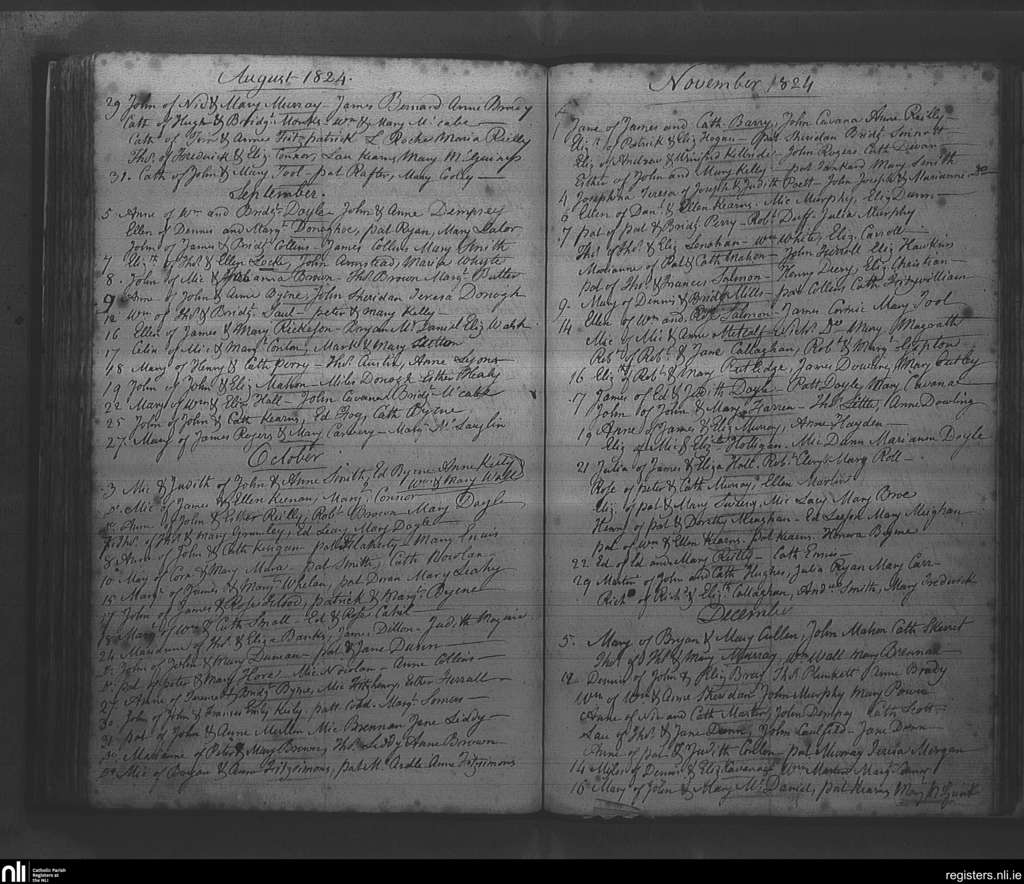 August 1824.
29 John of Nid & Mary Murray - James Bernard Anne
Cath of Hugh & Bridgt Wm & Mary McCabe
Cath of & Anne Fitzpatrick L Roche Maria Reilly
Thos of Frederick & Eliz Connor, Lau Kearns, Mary
31. Cath of John & Mary Tool - pat Rafter, Mary
September.
5 Anne of Wm and Bridgt Doyle - John & Anne Dempsey
Ellen of Dennis and Margt Donaghoe, pat Ryan, Mary Lalor
John of James & Bridgt Collins - James Collins Mary Smith
7 Elizth of Thos & Ellen Locke, John Armstead, Maria Whyte
8. John of Mic & Brown - Thos Brown Margt Butler
9 Anne of John & Anne Byrne, John Sheridan Teresa Donogh
12 Wm of Thos & Bridgt Saul - peter & Mary Kelly -
16 Ellen of James & Mary Bryan McDaniel Eliz Walsh
17 of Mic & Margt Conlon, Mark & Mary
18 Margt of Henry & Cath perry - Thos Austin, Anne Lyons
19 John of John & Eliz Mahon - Miles Donogh Esther Healy
22 Mary of Wm & Eliz Hall - John Cavana Bridgt McCabe
25 John of John & Cath Kearns, Ed Fog, Cath Byrne
27. Mary of James Rogers & Mary - Margt McLauglin
October
3 Mic & Judith of John & Anne Smith, Ed Byrne Anne Kiely
Mic of James & Ellen Keenan, Margt Connor Wm & Mary Wall
Anne of John & Esther Reilly, Robt Brown Mary Doyle
Thos of Thos & Mary Ed Leary Mary Doyle
8 Anne of John & Cath pat Flaharty - Mary Ennis
10 May of Corn & Mary Mara, pat Smith, Cath Nowlan
15 Margt of James & Margt Whelan, pat Doran Mary Leahy
17 John of James & Rose patrick & Margt Byrne
Mary of Wm & Cath Small - Ed & Rose Cahil
24 Marianne of Thos & Eliza Banks, James Dillon - Judith
John of John & Mary Duncan - pat & Jane Dunn
pat of peter & Mary Hore, Mic Nowlan - Anne Collins
27 Anne of Terence & Bridgt Byrne, Mic Fitzhenry, Esther Farrall
30 John of John & Frances Emily Kiely, patt Cobb. Margt Somers
31 pat of John & Anne Mullen Mic Brennan Jane Liddy
Marianne of Peter & Mary Brown, Thos Leddy Anne Brown
Mic of Bryan & Anne Fitzsimons, pat McArdle Anne Fitzsimons
November 1824
1 Jane of James and Cath Barry, John Cavana Anne Reilly
Elizth of Patrick & Eliz Hogan - pat Sheridan Bridgt Sinnott
Eliz of Andrew & Winifred - John Rogers Cath Devan
Esther of John and Mary Kelly - pat Tankard Mary Smith
4 Josephina Teresa of Joseph & Judith Poett - John Joseph & Marianne Do
6 Ellen of Danl & Ellen Kearns - Mic Murphy, Eliz Dunn
7 pat of pat & Bridgt Perry - Robt Duff - Julia Murphy
Thos of Thos & Eliz Lenahan - Wm White, Eliz Carroll
Marianne of Pat & Cath Mahon - John Eliz Hawkins
pat of Thos & Frances Salmon - Henry Deery, Eliz Christian
9. Mary of Dennis & Bridgt Mills - pat Collins Cath Fitzwilliam
Ellen of Wm and Rose Salmon - James Mary Tool
14 Mic of Mic & Anne Metcalf - Mary Magrath
Robt of Robt & Jane Callaghan, Robt & Margt
16 Eliz of Robt & Mary Rutledge, James Dowling, Mary
17 James of Ed & Judith Doyle - Patt Doyle, Mary Cavana
John of John & Mary Farren - Thos Little, Anne Dowling
19 Anne of James & Eliz Murray, Anne Hayden
Eliz of Mic & Elizth Holligan, Mic Dunn Marianne Doyle
21 Julia of James & Eliza Holt, Robt Mary Roll
Rose of peter & Cath Murray, Ellen Marlow
Eliz of pat & Mary Mic Lacy Mary Broe
Henry of pat & Dorothy Meighan - Ed Mary Meighan
pat of Wm & Ellen Kearns, pat Kearns, Honora Byrne
22 Ed of Ed and Mary - Cath Ennis
29 Martin of John and Cath Hughes, Julia Ryan Mary Carr
Richd of Richd & Elizth Callaghan, Andw Smith, Mary Broderick
December
5. Mary of Bryan & Mary Cullen, John Mahon Cath
Thos of Thos & Mary Murray, Wm Wall Mary Brennan
12 Dennis of John & Eliz Thos Plunkett Anne Brady
Wm of Wm & Anne Sheridan John Murphy Mary
Anne of Nid and Cath Martin, John Dempsy Cath Scott
Lau of Thos & Jane Dunn, John Caulfield - Jane Dunn
Anne of pat & Judith Cullen - pat Murray Teresa Morgan
14 Miles of Dennis & Eliz Cavanagh Wm Martin Margt
16 Mary of John & Mary McDaniel, pat Kearns Mary
nli
Catholic Parish
Registers at
the NLI
registers.nli.ie